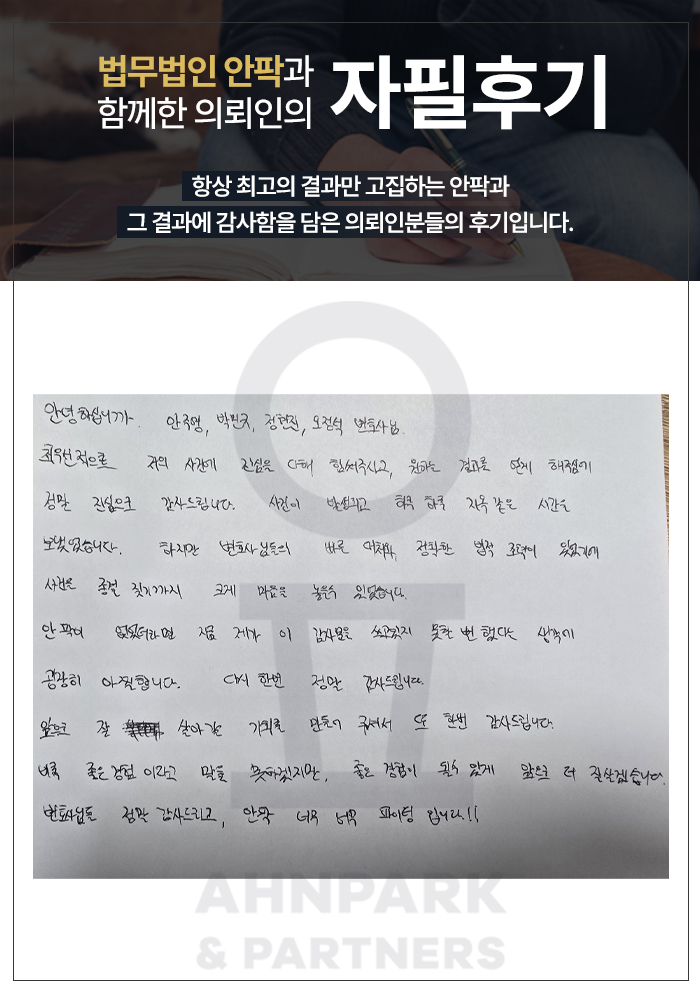 법무법인 안팍과
함께한 의뢰인의
자필후기
항상 최고의 결과만 고집하는 안팍과
그 결과에 감사함을 담은 의뢰인분들의 후기입니다.
안녕하십니까. 안주영, 박민규, 정현진, 오정석 변호사님.
최우선적으로 저의 사건에 진심을 다해 힘써주시고, 원하는 결과를 얻게 해줬기에
정말 진심으로 감사드립니다. 사건이 발생되고 하루 하루 지옥 같은 시간을
보냈었습니다. 하지만 변호사님들의 빠른 대처와 정확한 법적 조력이 있었기에
사건을 종결 짓기까지 크게 마음을 놓을수 있었습니다.
안팍이 없었더라면 지금 제가 이 감사문을 쓰고있지 못할 뻔 했다는 생각에
굉장히 아찔합니다. 다시 한번 정말 감사드립니다.
앞으로 잘 살아갈 기회를 만들어 주셔서 또 한번 감사드립니다.
비록 좋은경험 이라고 말을 못하겠지만, 좋은 경험이 될수 있게 앞으로 더 잘살겠습니다.
변호사님들 정말 감사드리고, 안팍 너무 너무 파이팅 입니다!!
AHNPARK
& PARTNERS